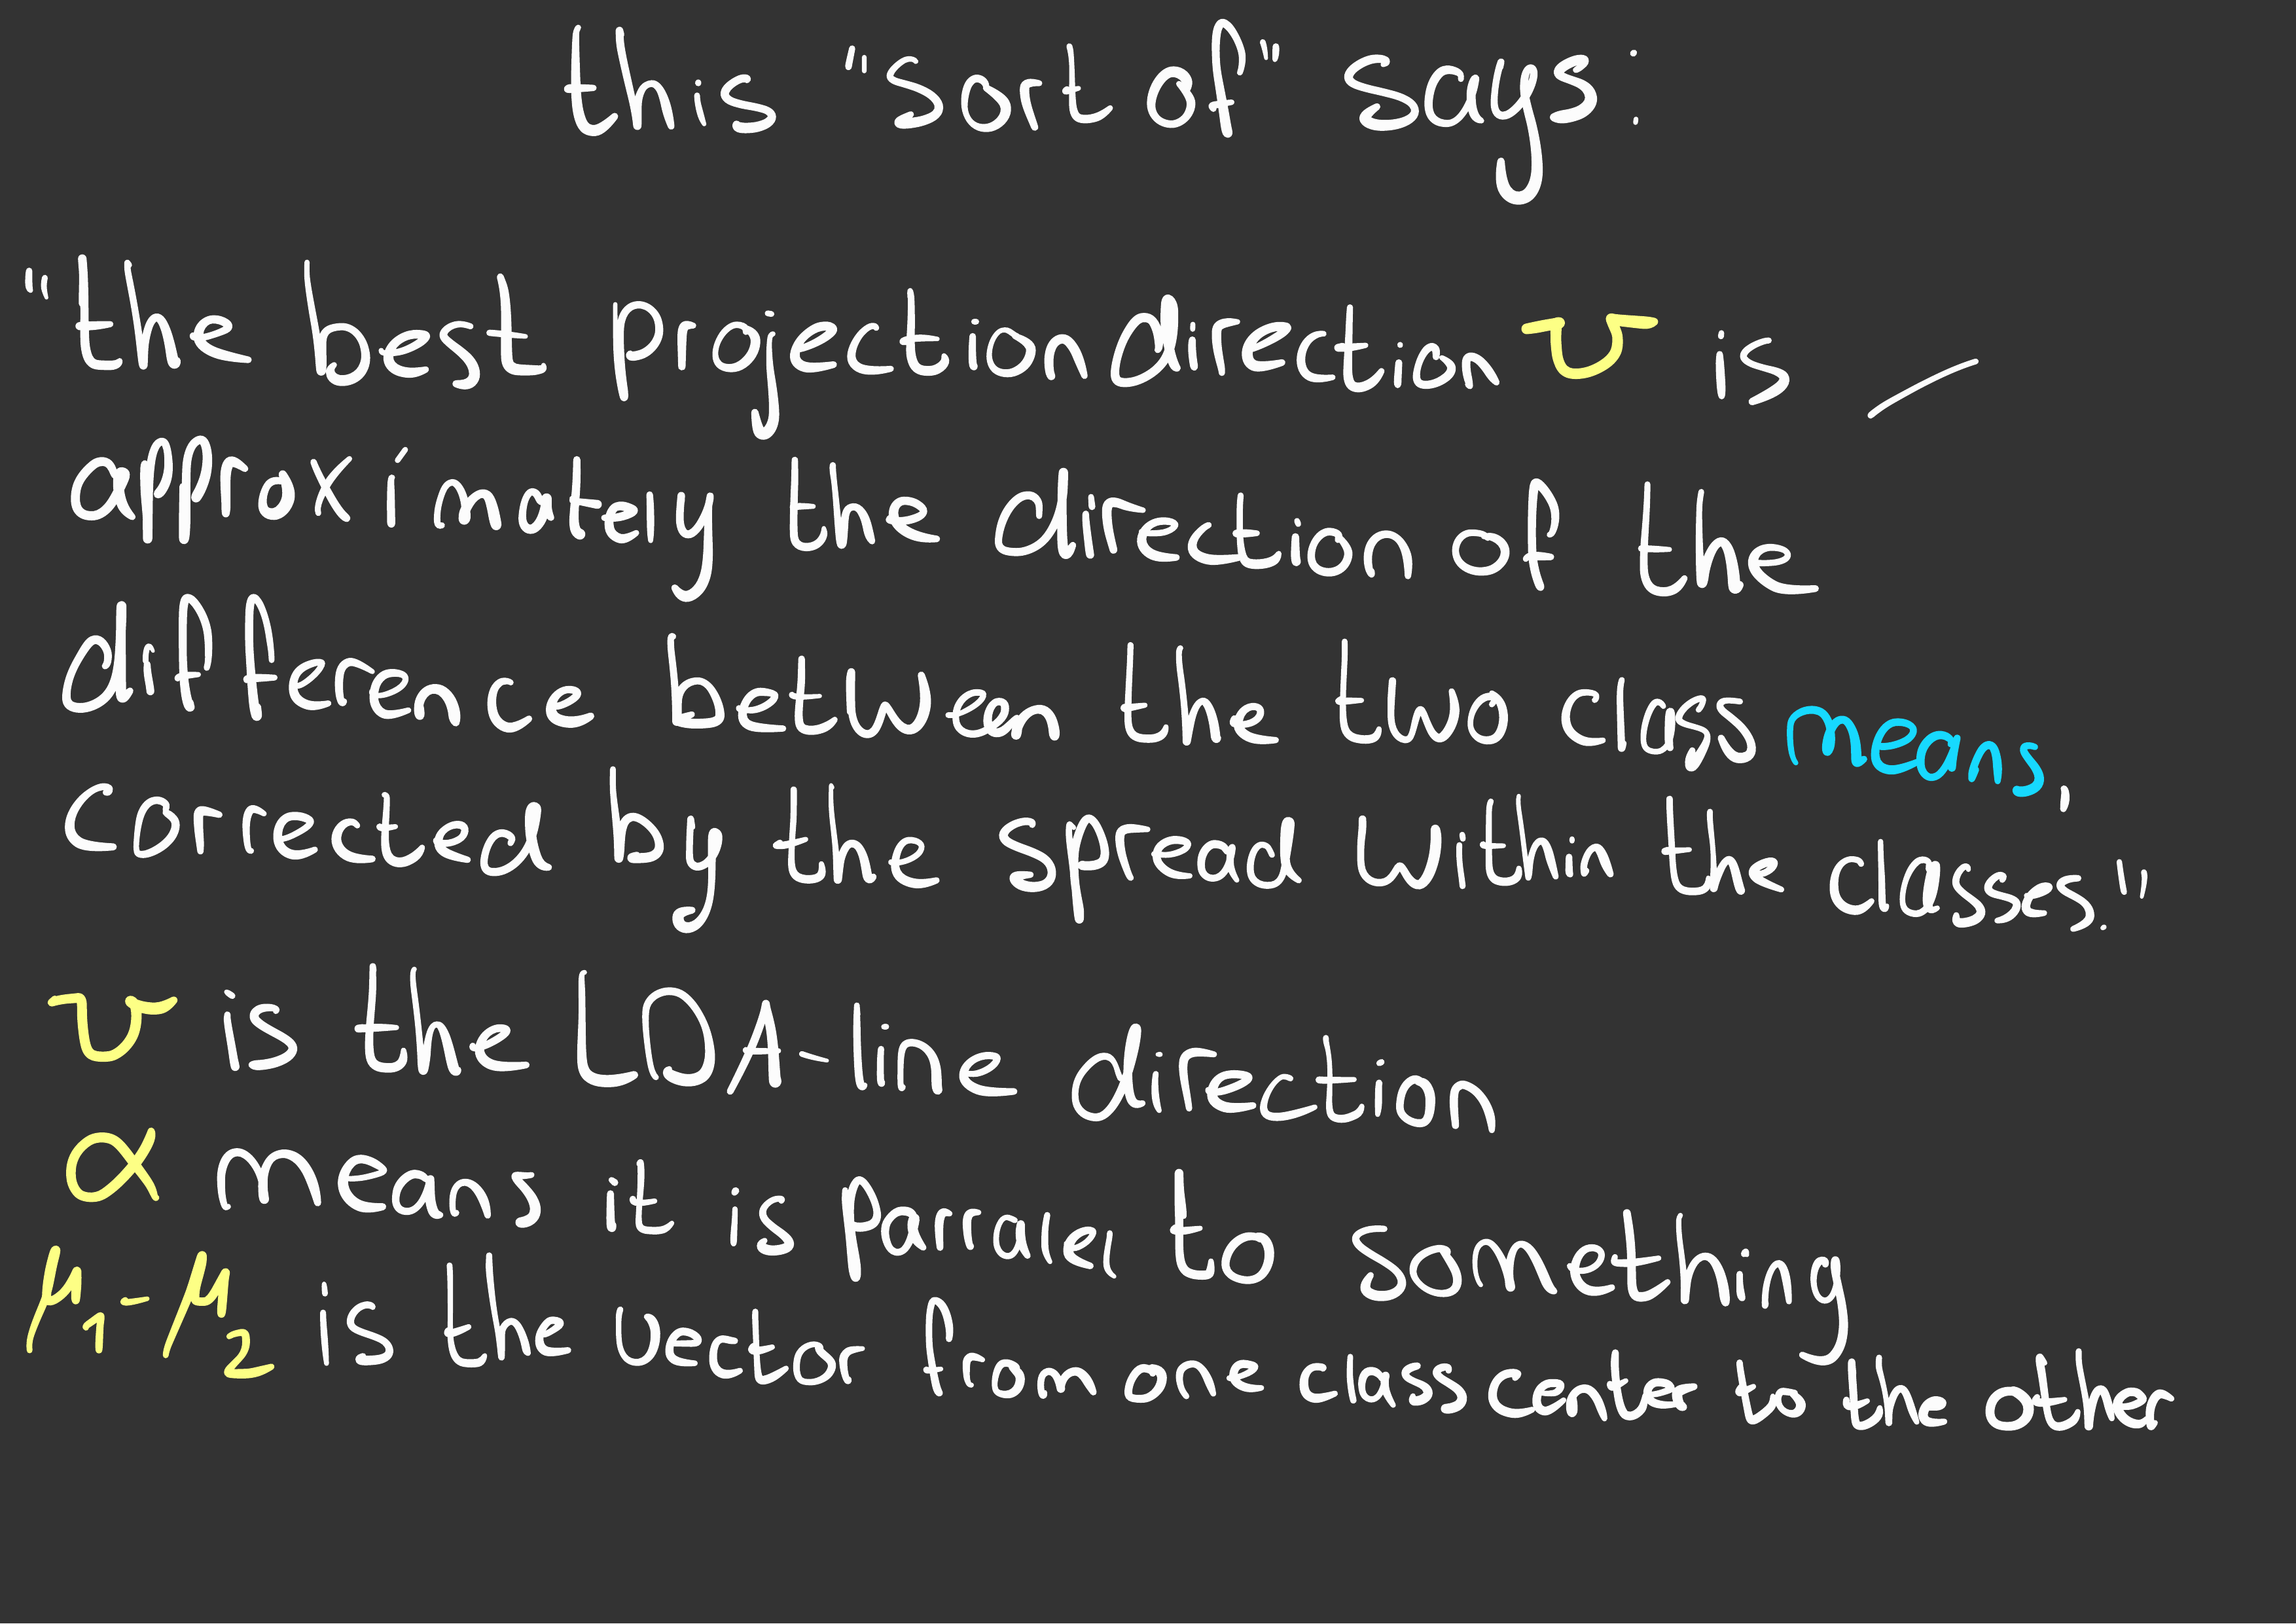 this "sort of" says:
"the best projection direction v is
approximately the direction of the
difference between the two class means,
corrected by the spread within the classes."
v is the LDA-line direction
∝ means it is parralel to something
μ1-μ2 is the vector from one class center to the other